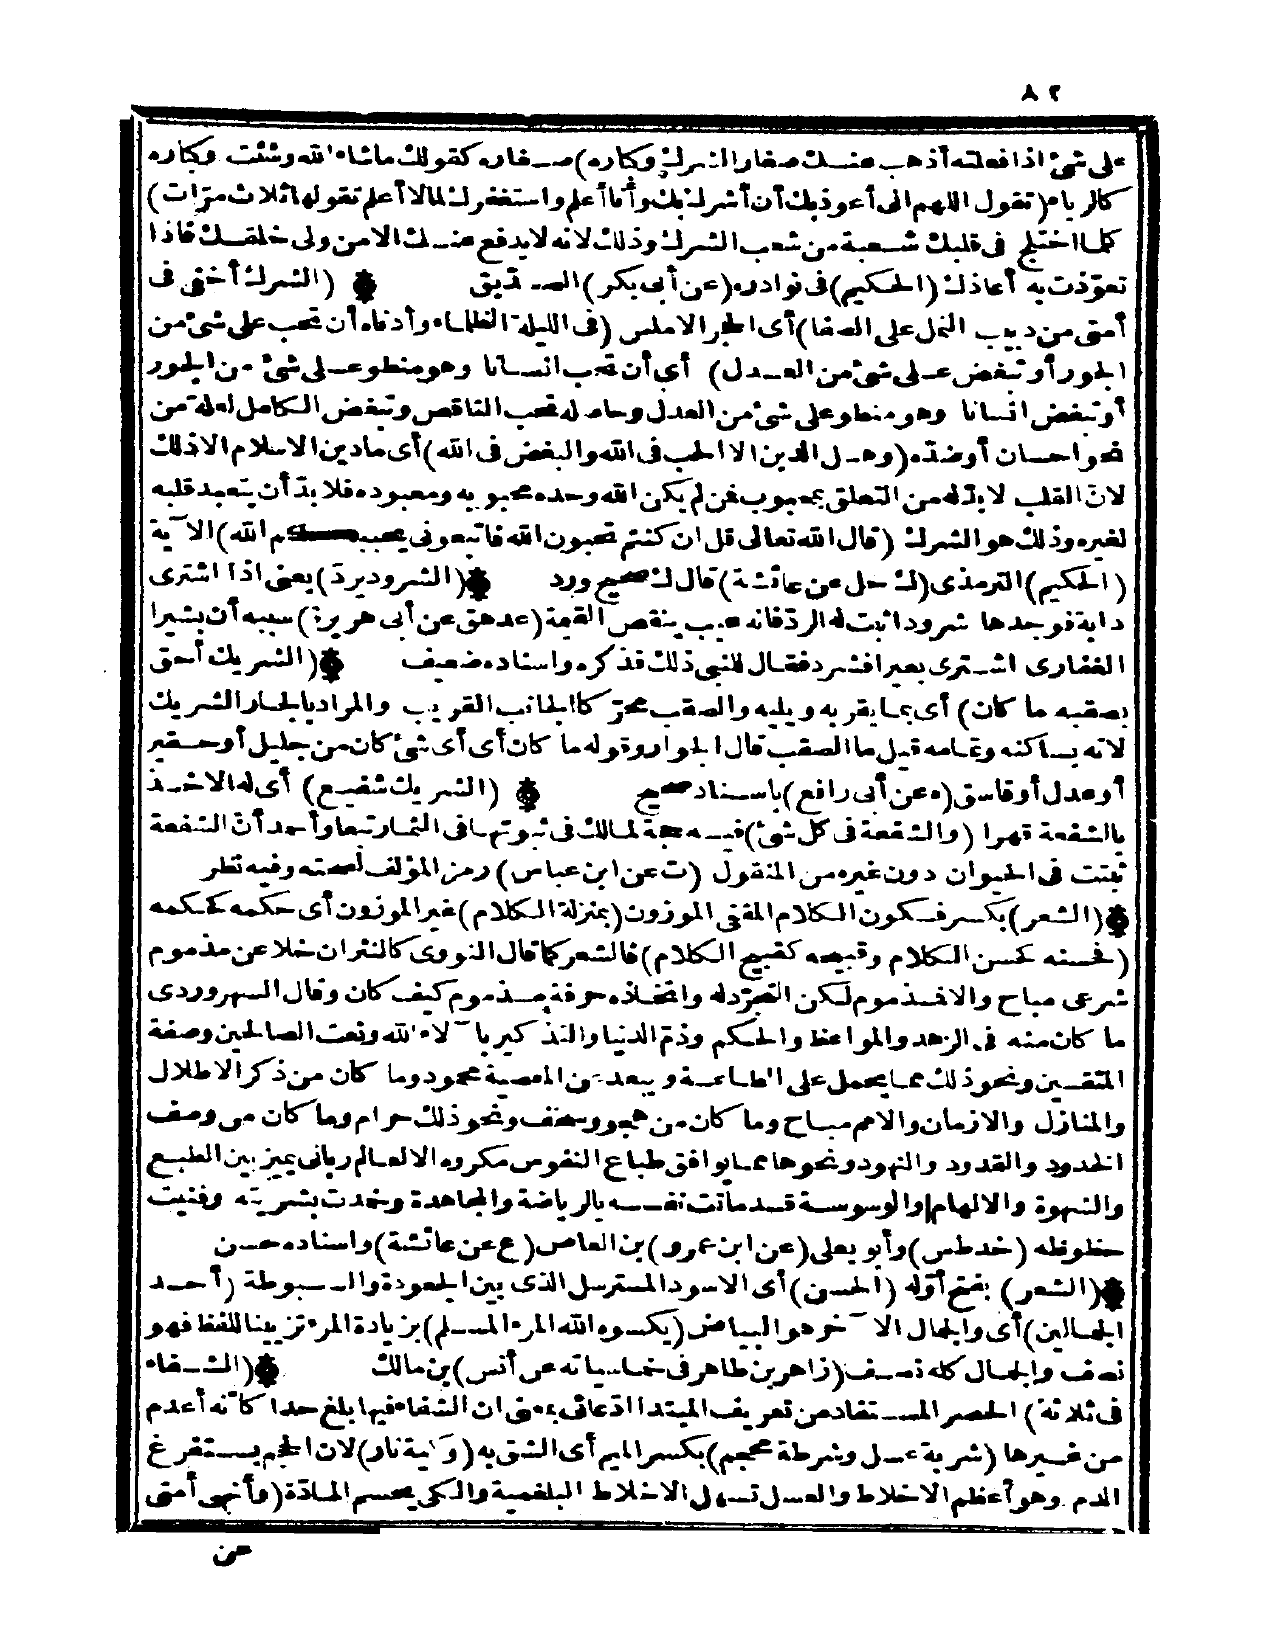 ٨٢
على شئ اذا فعلته أذهب عنك صغار الشرك وكاره) صغاره كقولك ماشاء الله وشئت وكاره
كالرياء (تقول اللهم انى أعوذ بك أن أشرك بك وأنا أعلم واستغفرك لما لا أعلم تقولها ثلاث مرّات)
كلما اختلج فى قلبك شعبة من شعب الشرك وذلك لانه لا يدفع عنك الا من ولى خلقك فاذا
تعوّذت به أعاذك (الحكيم) فى نوادره (عن أبى بكر) الصديق ۞ (الشرك أخفى فى
أمتى من دبيب النمل على الصفا) أى الحجر الاملس (فى الليلة الظلماء وأدناه أن تحب على شئ من
الجور أو تبغض على شئ من العدل) أى أن تحب انسانا وهو منطو على شئ من الجور
أو تبغض انسانا وهو منطو على شئ من العدل وحاصله تحب الناقص وتبغض الكامل لعلة من
نحو احسان أو ضدّه (وهل الدين الا الحب فى الله والبغض فى الله) أى ما دين الاسلام الا ذلك
لانّ القلب لا بدّ له من التعلق بمحبوب فمن لم يكن الله وحده محبوبه ومعبوده فلا بدّ أن يتعبد قلبه
لغيره وذلك هو الشرك (قال الله تعالى قل ان كنتم تحبون الله فاتبعونى يحببكم الله) الآية
(الحكيم) الترمذى (ك حل عن عائشة) قال ك صحيح ورد ۞ (الشرود يردّ) يعنى اذا اشترى
دابة فوجدها شرودا ثبت له الردّ فانه عيب ينقص القيمة (عد هق عن أبى هريرة) سببه أن بشيرا
الغفارى اشترى بعيرا فشرد فقال للنبى ذلك فذكره واسناده ضعيف ۞ (الشريك أحق
بصقبه ما كان) أى بما يقربه ويليه والصقب محرّكا الجانب القريب والمراد بالجار الشريك
لانه يساكنه وتمامه قيل ما الصقب قال الجوار وقوله ما كان أى أى شئ كان من جليل أو حقير
أو عدل أو فاسق (ه عن أبى رافع) باسناد صحيح ۞ (الشريك شفيع) أى له الاخذ
بالشفعة قهرا (والشفعة فى كل شئ) فيه حجة لمالك فى ثبوتها فى الثمار تبعا وأحمد أنّ الشفعة
ثبتت فى الحيوان دون غيره من المنقول (ت عن ابن عباس) رمز المؤلف لصحته وفيه نظر
۞ (الشعر) بكسر فسكون الكلام المقفى الموزون (بمنزلة الكلام) غير الموزون أى حكمه كحكمه
(فحسنه كحسن الكلام وقبيحه كقبيح الكلام) فالشعر كما قال النووى كالنثر ان خلا عن مذموم
شرعى مباح والا فمذموم لكن التجرّد له واتخاذه حرفة مذموم كيف كان وقال السهروردى
ما كان منه فى الزهد والمواعظ والحكم وذمّ الدنيا والتذكير بآلاء الله ونعت الصالحين وصفة
المتقين ونحو ذلك مما يحمل على الطاعة ويبعد عن المعصية محمود وما كان من ذكر الاطلال
والمنازل والازمان والامم مباح وما كان من هجو وسخف ونحو ذلك حرام وما كان من وصف
الخدود والقدود والنهود ونحوها مما يوافق طباع النفوس مكروه الا لعالم ربانى يميز بين الطبع
والشهوة والالهام والوسوسة قد ماتت نفسه بالرياضة والمجاهدة وخمدت بشريته وفنيت
حظوظه (خد طس) وأبو يعلى (عن ابن عمرو) بن العاص (ع عن عائشة) واسناده حسن
۞ (الشعر) بفتح أوّله (الحسن) أى الاسود المسترسل الذى بين الجعودة والسبوطة (أحد
الجمالين) أى والجمال الآخر هو البياض (يكسوه الله المرء المسلم) بزيادة المرء تزيينا للفظ فهو
نصف والجمال كله نصف (زاهر بن طاهر فى خماسياته عن أنس) بن مالك ۞ (الشفاء
فى ثلاثة) الحصر المستفاد من تعريف المبتدا ادّعائى بمعنى ان الشفاء فيها بلغ حدا كأنه أعدم
من غيرها (شربة عسل وشرطة محجم) بكسر الميم أى الشق به (وكية نار) لان الحجم يستفرغ
الدم وهو أعظم الاخلاط والعسل تسهل الاخلاط البلغمية والكى يحسم المادّة (وأنهى أمتى
عن